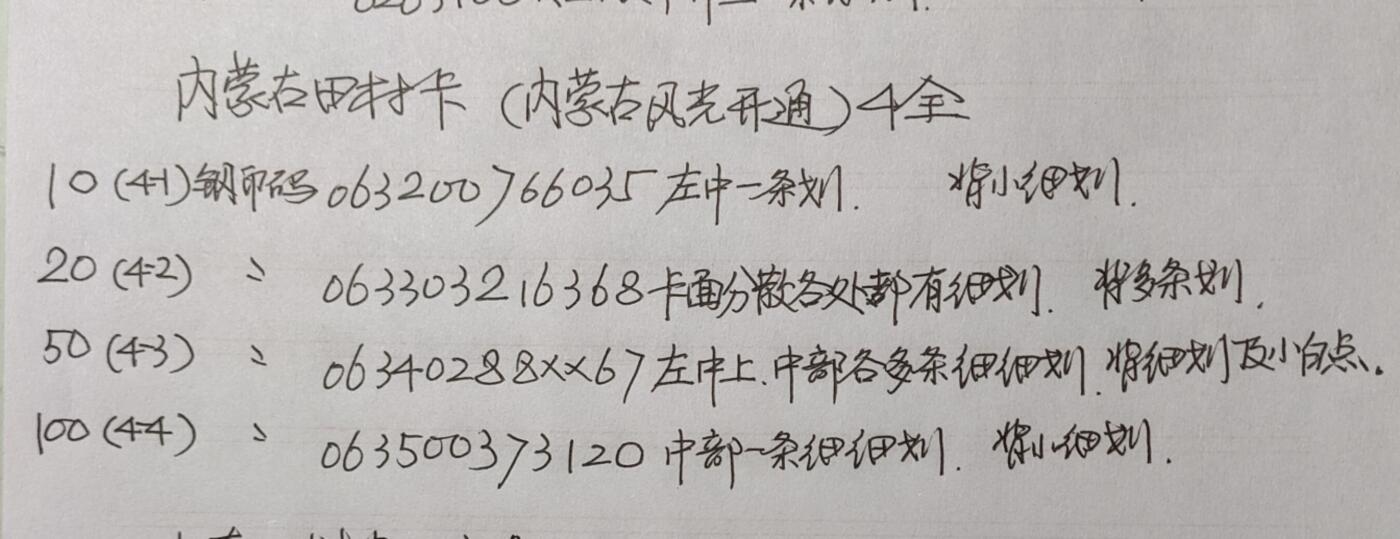 内蒙古田村卡（内蒙古风光开通）4全
10（4-1）钢印码063200766035左中一条划. 背小细划.
20（4-2） 〃 063303216368卡面分散各处都有细划. 背多条划.
50（4-3） 〃 06340288××67左中上.中部各多条细细划.背细划及小白点.
100（4-4） 〃 063500373120中部一条细细划. 背小细划.